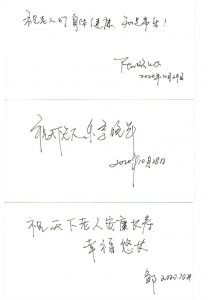 祝老人们身体健康、知足常乐！
2020年10月29日
祝天下老人乐享晚年
2020年10月28日
祝天下老人安康长寿
幸福悠长